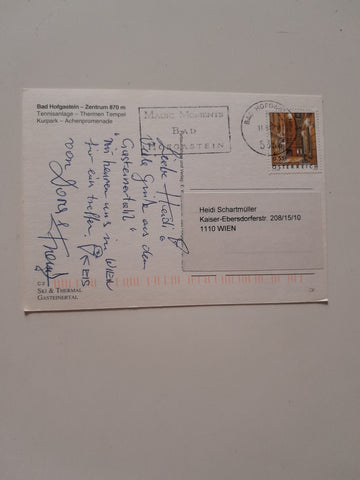 Bad Hofgastein – Zentrum 870 m
Tennisanlage – Thermen Tempel
Kurpark – Achenpromenade
MAGIC MOMENTS
BAD
HOFGASTEIN
BAD HOFGAST
ÖSTERREICH
Liebe Heidi!
Viele Grüße aus dem
Gasteinertal!
Wir hören uns in WIEN
für ein treffen,
von Doris &
Heidi Schartmüller
Kaiser-Ebersdorferstr. 208/15/10
1110 WIEN
SKI & THERMAL
GASTEINERTAL